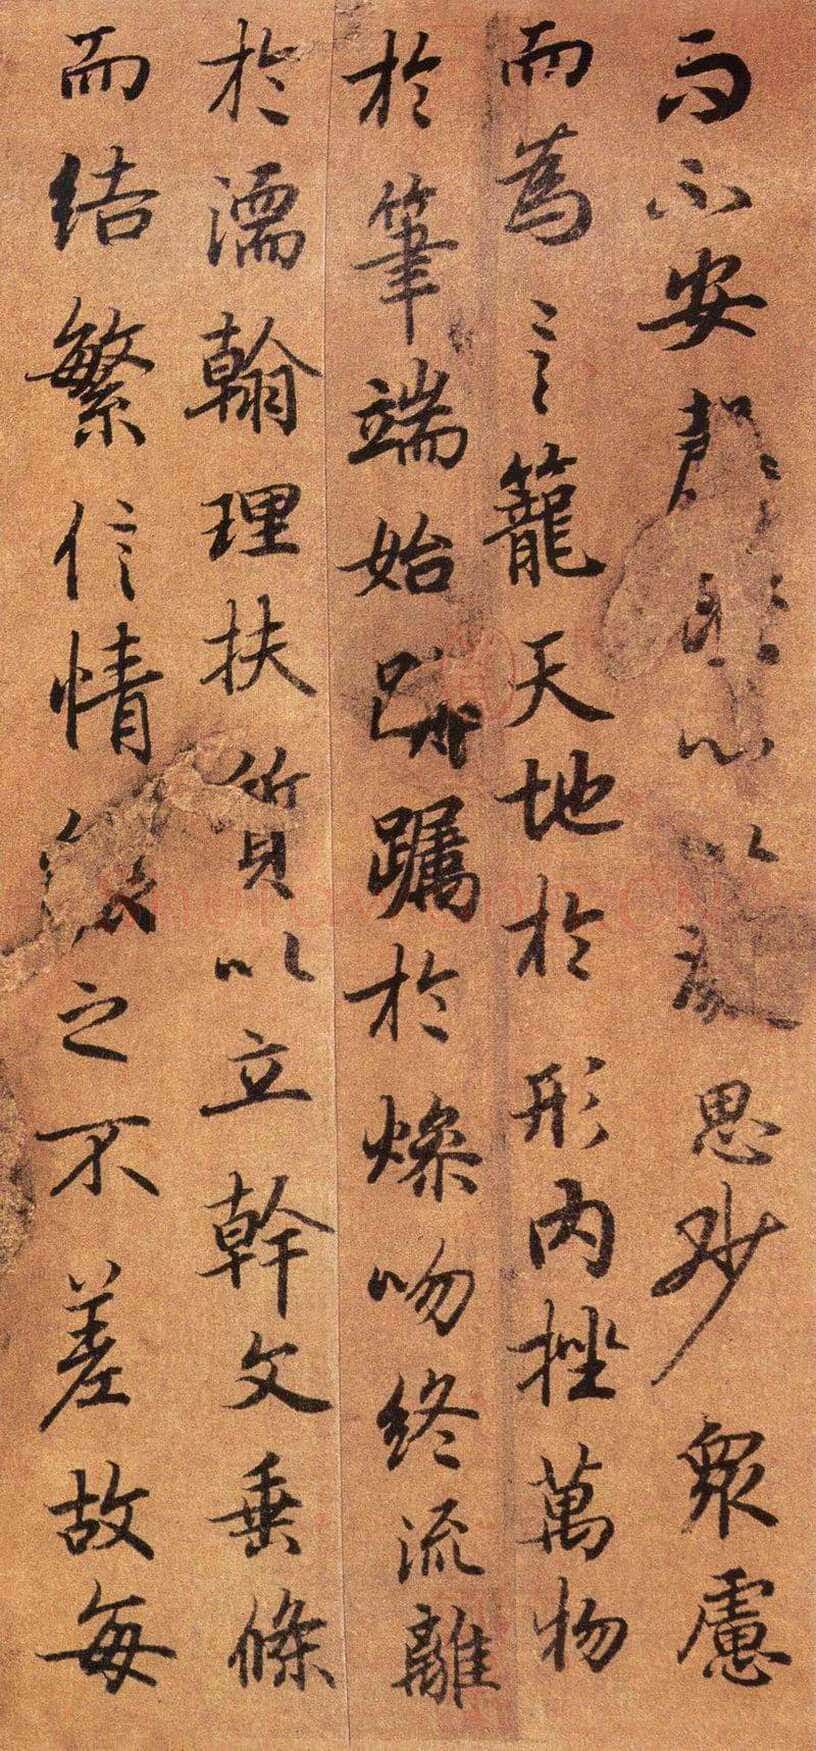 而不安罄澄心以凝思眇衆慮
而為言籠天地於形內挫萬物
於筆端始躑躅於燥吻終流離
於濡翰理扶質以立幹文垂條
而結繁信情貌之不差故每